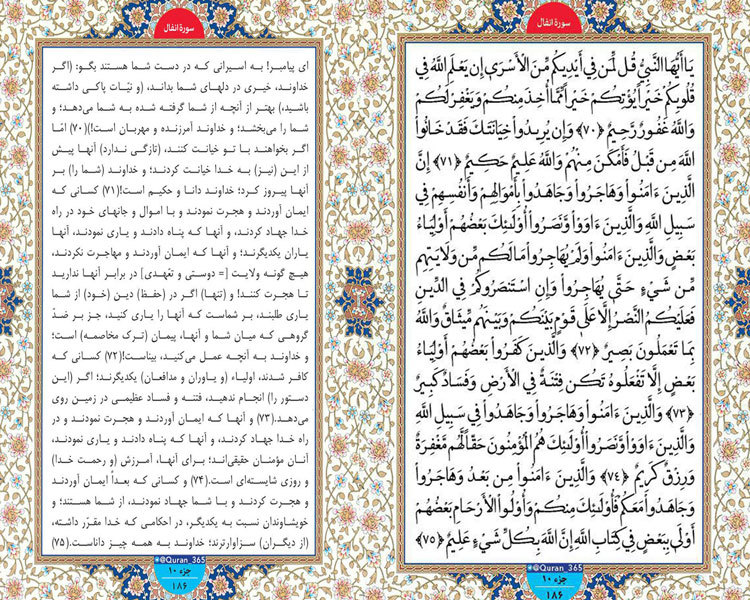 سورهٔ انفال
يَا أَيُّهَا النَّبِيُّ قُل لِّمَن فِي أَيْدِيكُم مِّنَ الْأَسْرَى إِن يَعْلَمِ اللَّهُ فِي
قُلُوبِكُمْ خَيْراً يُؤْتِكُمْ خَيْراً مِّمَّا أُخِذَ مِنكُمْ وَيَغْفِرْ لَكُمْ
وَاللَّهُ غَفُورٌ رَّحِيمٌ ﴿۷۰﴾ وَإِن يُرِيدُواْ خِيَانَتَكَ فَقَدْ خَانُواْ
اللَّهَ مِن قَبْلُ فَأَمْكَنَ مِنْهُمْ وَاللَّهُ عَلِيمٌ حَكِيمٌ ﴿۷۱﴾ إِنَّ
الَّذِينَ ءَامَنُواْ وَهَاجَرُواْ وَجَاهَدُواْ بِأَمْوَالِهِمْ وَأَنفُسِهِمْ فِي
سَبِيلِ اللَّهِ وَالَّذِينَ ءَاوَواْ وَّنَصَرُواْ أُوْلَـئِكَ بَعْضُهُمْ أَوْلِيَاءُ
بَعْضٍ وَالَّذِينَ ءَامَنُواْ وَلَمْ يُهَاجِرُواْ مَا لَكُم مِّن وَلَايَتِهِم
مِّن شَيْءٍ حَتَّى يُهَاجِرُواْ وَإِنِ اسْتَنصَرُوكُمْ فِي الدِّينِ
فَعَلَيْكُمُ النَّصْرُ إِلَّا عَلَى قَوْمٍ بَيْنَكُمْ وَبَيْنَهُم مِّيثَاقٌ وَاللَّهُ
بِمَا تَعْمَلُونَ بَصِيرٌ ﴿۷۲﴾ وَالَّذِينَ كَفَرُواْ بَعْضُهُمْ أَوْلِيَاءُ
بَعْضٍ إِلَّا تَفْعَلُوهُ تَكُن فِتْنَةٌ فِي الْأَرْضِ وَفَسَادٌ كَبِيرٌ
﴿۷۳﴾ وَالَّذِينَ ءَامَنُواْ وَهَاجَرُواْ وَجَاهَدُواْ فِي سَبِيلِ اللَّهِ
وَالَّذِينَ ءَاوَواْ وَّنَصَرُواْ أُوْلَـئِكَ هُمُ الْمُؤْمِنُونَ حَقّاً لَّهُم مَّغْفِرَةٌ
وَرِزْقٌ كَرِيمٌ ﴿۷۴﴾ وَالَّذِينَ ءَامَنُواْ مِن بَعْدُ وَهَاجَرُواْ
وَجَاهَدُواْ مَعَكُمْ فَأُوْلَـئِكَ مِنكُمْ وَأُوْلُواْ الْأَرْحَامِ بَعْضُهُمْ
أَوْلَى بِبَعْضٍ فِي كِتَابِ اللَّهِ إِنَّ اللَّهَ بِكُلِّ شَيْءٍ عَلِيمٌ ﴿۷۵﴾
@Quran_365
جزء ۱۰
۱۸۶
سورهٔ انفال
ای پیامبر! به اسیرانی که در دست شما هستند بگو: (اگر
خداوند، خیری در دلهای شما بداند، (و نیّات پاکی داشته
باشید،) بهتر از آنچه از شما گرفته شده به شما می‌دهد؛ و
شما را می‌بخشد؛ و خداوند آمرزنده و مهربان است!)(۷۰) امّا
اگر بخواهند با تو خیانت کنند، (تازگی ندارد) آنها پیش
از این (نیز) به خدا خیانت کردند؛ و خداوند (شما را) بر
آنها پیروز کرد؛ خداوند دانا و حکیم است!(۷۱) کسانی که
ایمان آوردند و هجرت نمودند و با اموال و جانهای خود در راه
خدا جهاد کردند، و آنها که پناه دادند و یاری نمودند، آنها
یاران یکدیگرند؛ و آنها که ایمان آوردند و مهاجرت نکردند،
هیچ گونه ولایت [= دوستی و تعهّدی] در برابر آنها ندارید
تا هجرت کنند! و (تنها) اگر در (حفظ) دین (خود) از شما
یاری طلبند، بر شماست که آنها را یاری کنید، جز بر ضدّ
گروهی که میان شما و آنها، پیمان (ترک مخاصمه) است؛
و خداوند به آنچه عمل می‌کنید، بیناست!(۷۲) کسانی که
کافر شدند، اولیاء (و یاوران و مدافعان) یکدیگرند؛ اگر (این
دستور را) انجام ندهید، فتنه و فساد عظیمی در زمین روی
می‌دهد.(۷۳) و آنها که ایمان آوردند و هجرت نمودند و در
راه خدا جهاد کردند، و آنها که پناه دادند و یاری نمودند،
آنان مؤمنان حقیقی‌اند؛ برای آنها، آمرزش (و رحمت خدا)
و روزی شایسته‌ای است.(۷۴) و کسانی که بعداً ایمان آوردند
و هجرت کردند و با شما جهاد نمودند، از شما هستند؛ و
خویشاوندان نسبت به یکدیگر، در احکامی که خدا مقرّر داشته،
(از دیگران) سزاوارترند؛ خداوند به همه چیز داناست.(۷۵)
@Quran_365
جزء ۱۰
۱۸۶